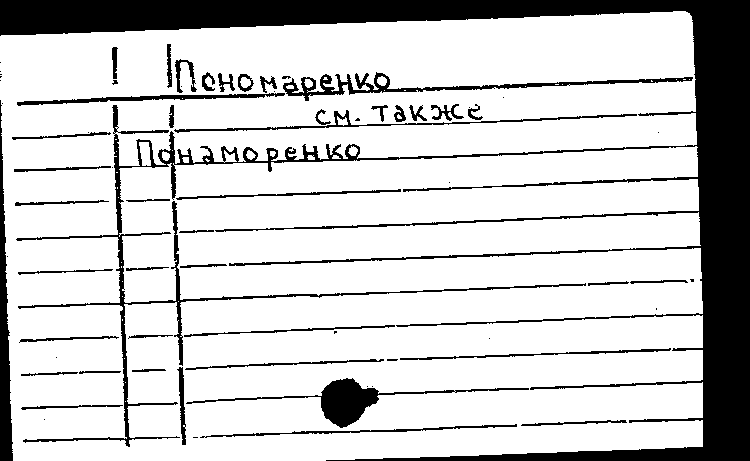 Пономаренко
см. также
Понаморенко